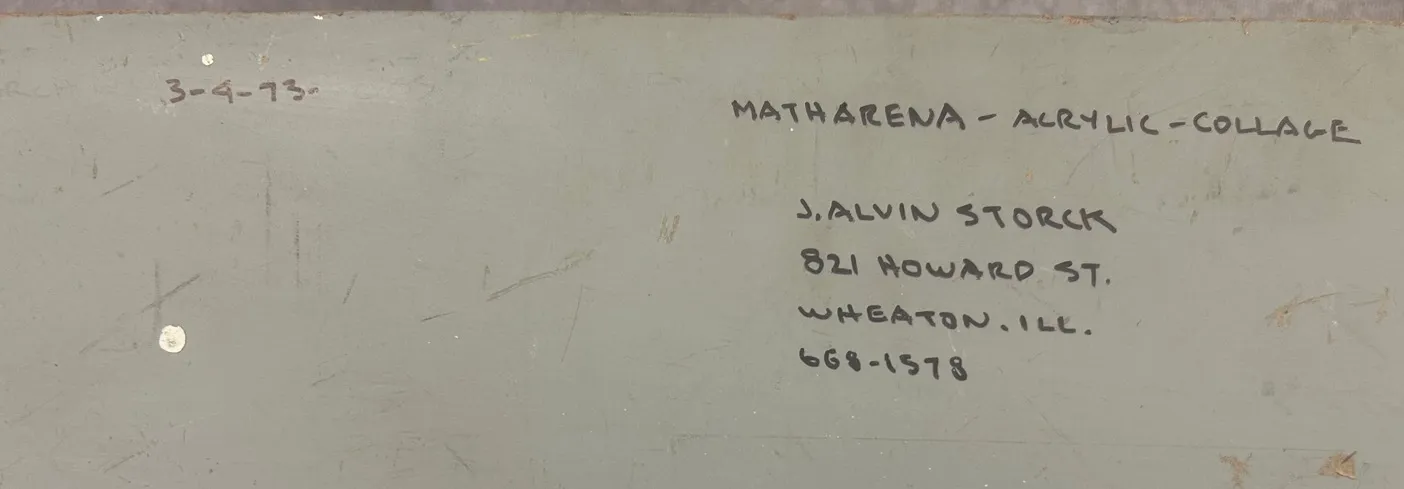 3-4-73-
MATHARENA - ACRYLIC - COLLAGE
J. ALVIN STORCK
821 HOWARD ST.
WHEATON. ILL.
668-1578